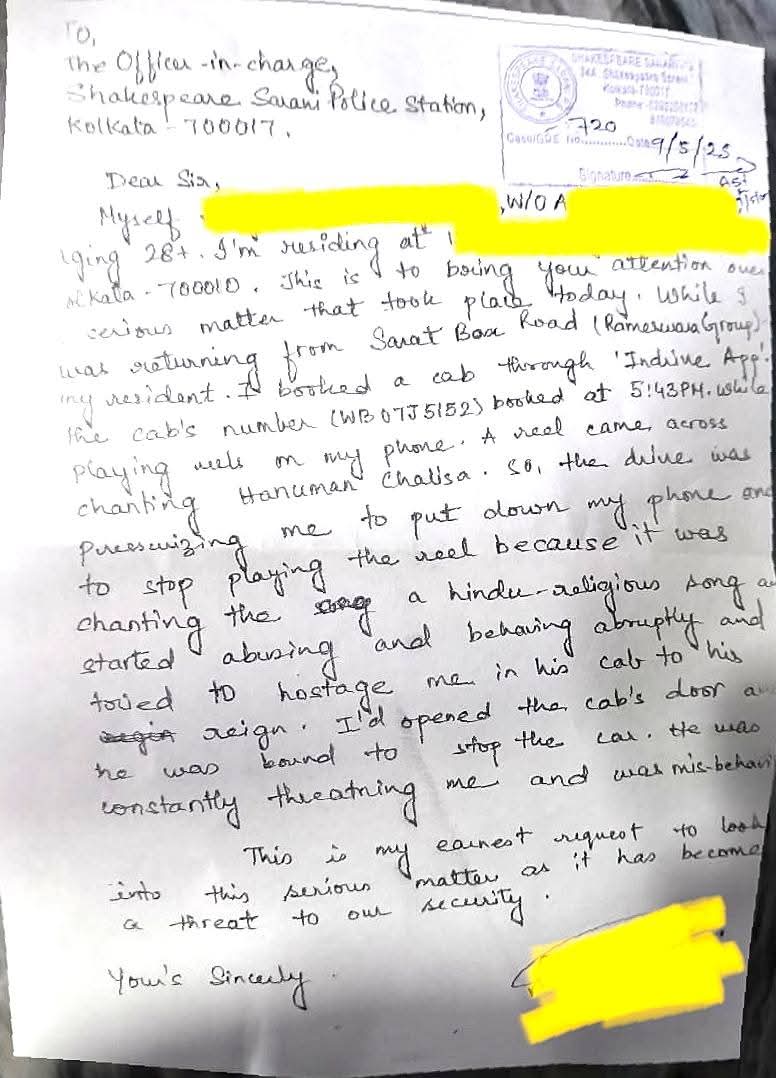 To,
The Officer-in-charge,
Shakespeare Sarani Police Station,
Kolkata - 700017.
SHAKESPEARE SARANI
Kolkata-700017
720
Case/GDE No. Date 9/5/25
Signature
ASI
Dear Sir,
Myself , W/O A
ging 28+. I'm residing at
lkata - 700010. This is to bring your attention over
serious matter that took place today. While I
was returning from Sarat Bose Road (Rameswara Group)
my resident. I booked a cab through 'Indrive App'.
the cab's number (WB07J5152) booked at 5:43PM. While
playing reels on my phone. A reel came across
chanting Hanuman Chalisa. So, the drive was
me to put down my phone and
to stop playing the reel because it was
chanting the a hindu-religious song a
started abusing and behaving abruptly and
tried to hostage me in his cab to his
reign. I'd opened the cab's door a
he was bound to stop the car. He was
constantly threatning me and was mis-behavi
This is my earnest request to look
into this serious matter as it has become
a threat to our security.
Your's Sincerly.